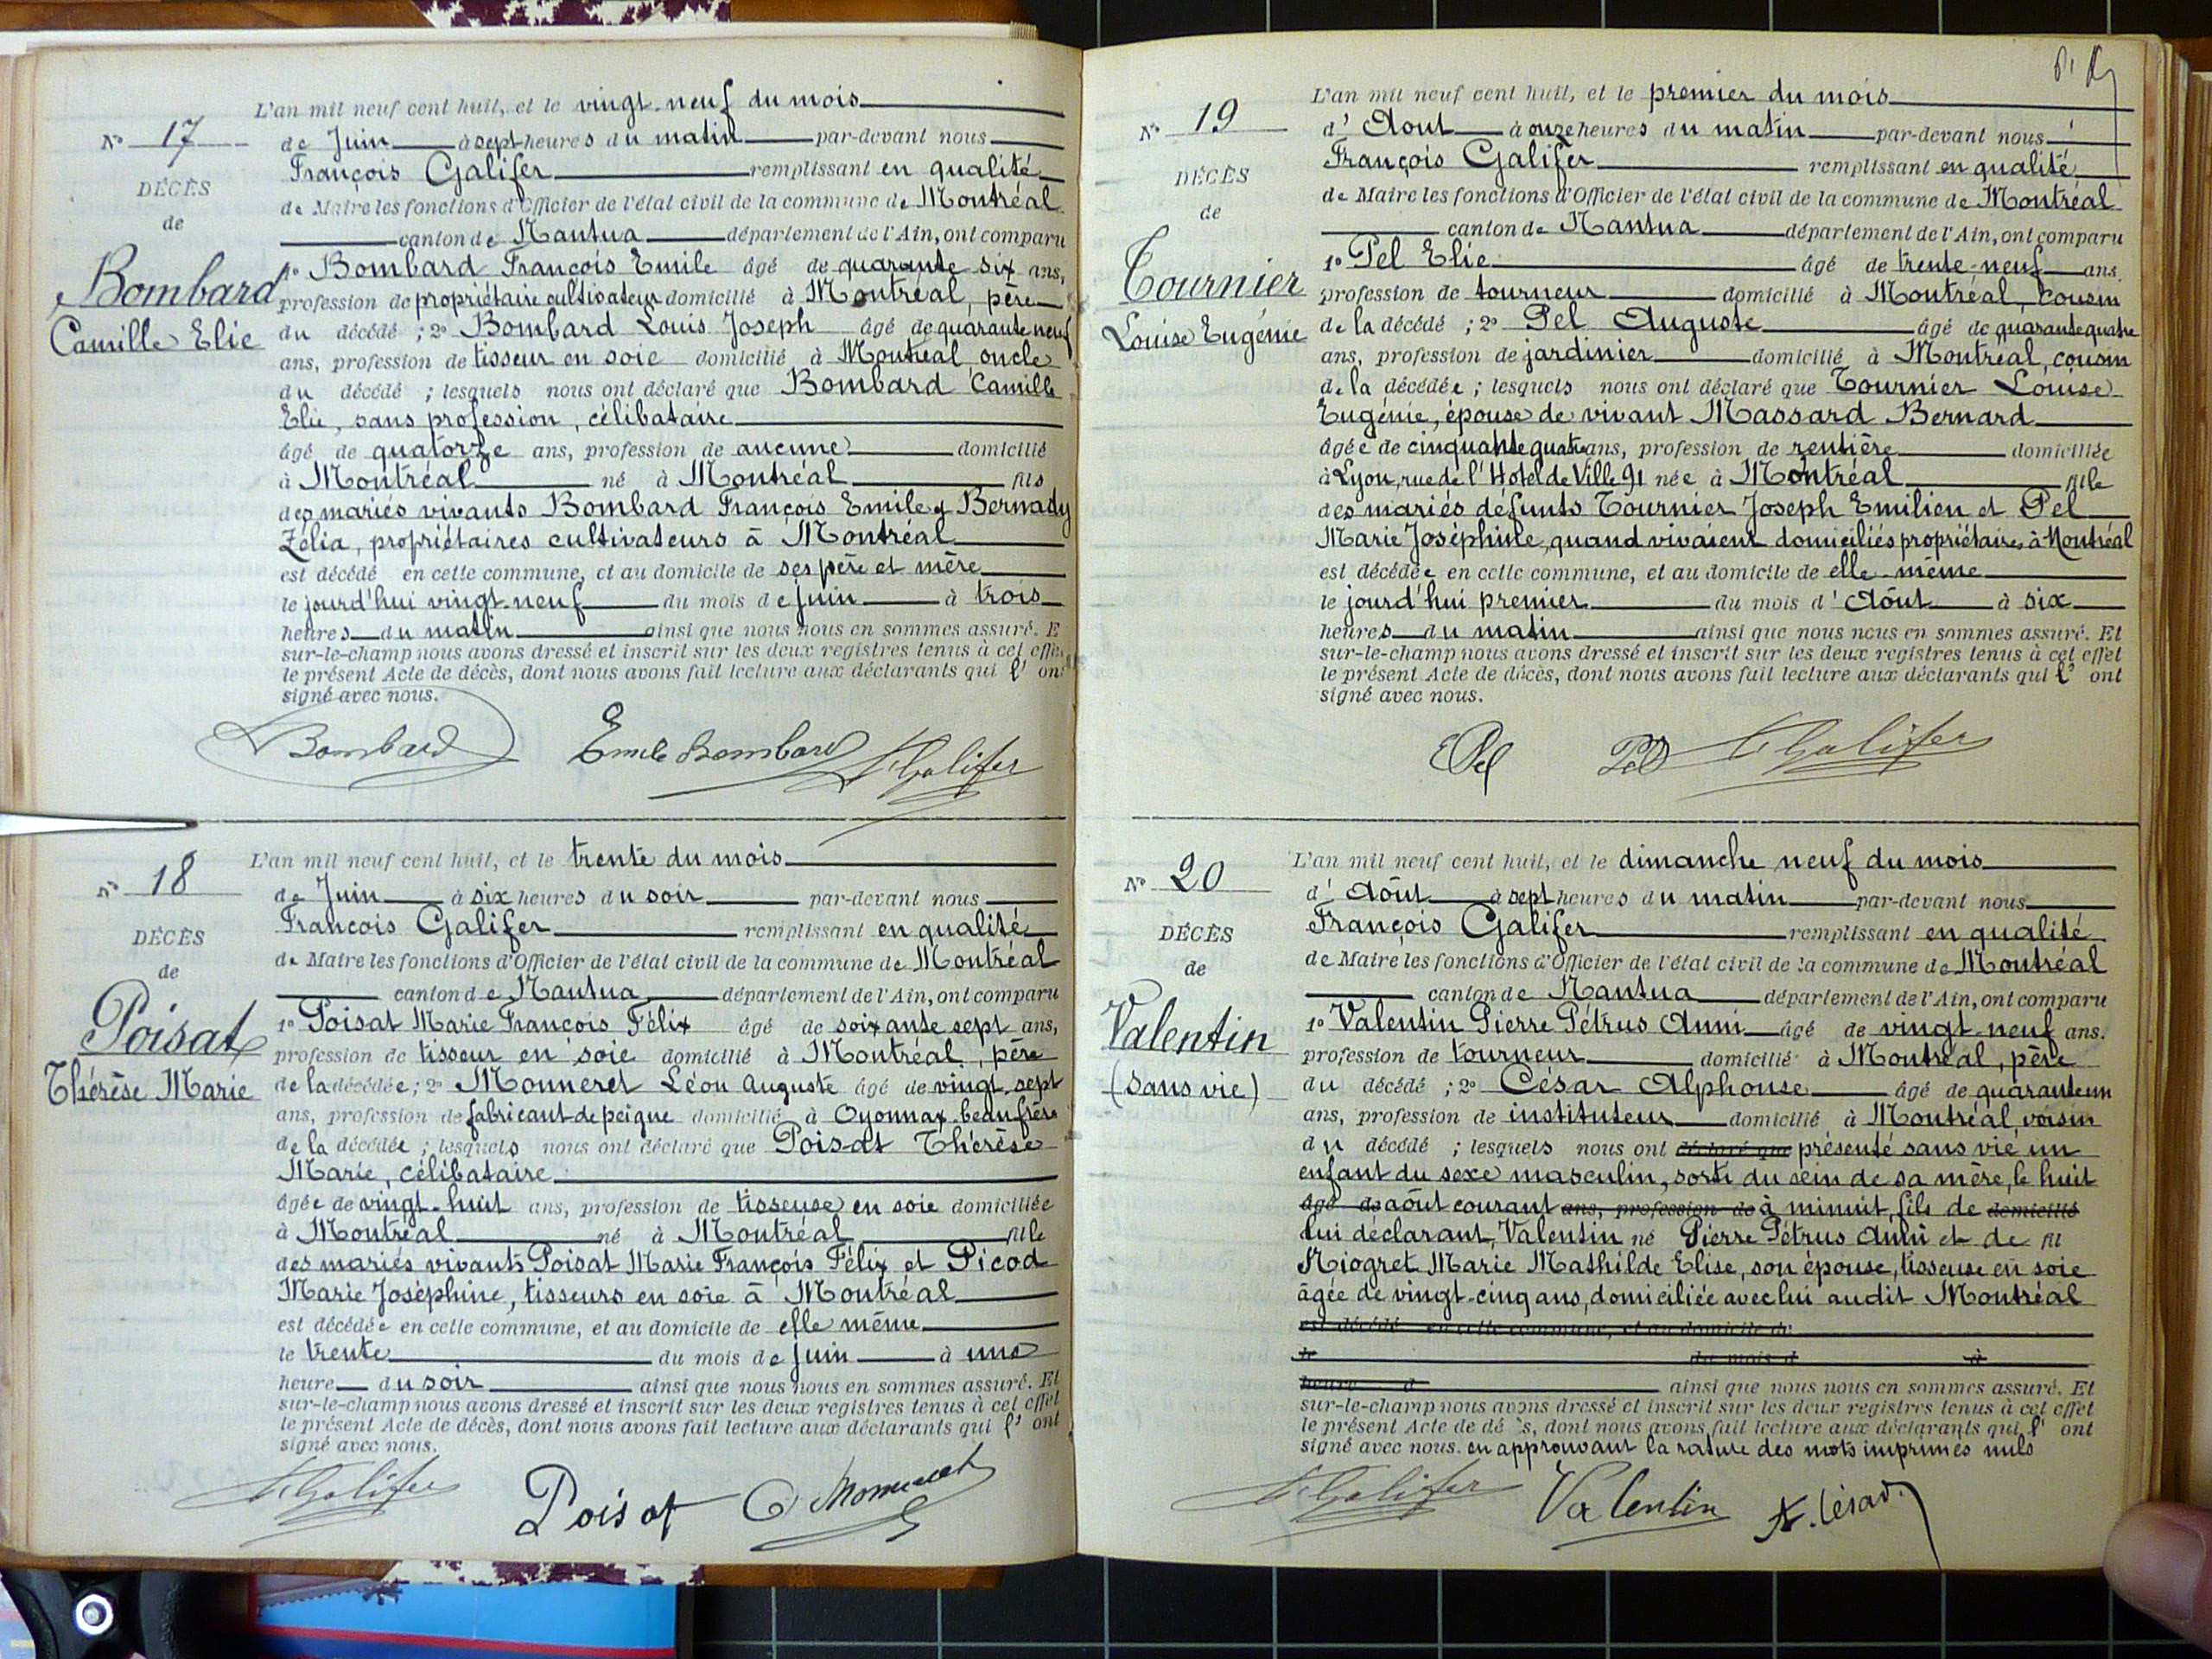 L'an mil neuf cent huit, et le vingt-neuf du mois
N° 17
de Juin à sept heures du matin par-devant nous
François Galifer remplissant en qualité
DÉCÈS
de Maire les fonctions d'Officier de l'état civil de la commune de Montréal
de
canton de Nantua département de l'Ain, ont comparu
Bombard
Camille Elie
1° Bombard François Emile âgé de quarante six ans,
profession de propriétaire cultivateur domicilié à Montréal, père
du décédé ; 2° Bombard Louis Joseph âgé de quarante neuf
ans, profession de tisseur en soie domicilié à Montréal, oncle
du décédé ; lesquels nous ont déclaré que Bombard Camille
Elie, sans profession, célibataire
âgé de quatorze ans, profession de aucune domicilié
à Montréal né à Montréal fils
des mariés vivants Bombard François Emile & Bernady
Zélia, propriétaires cultivateurs à Montréal
est décédé en cette commune, et au domicile de ses père et mère
le jourd'hui vingt-neuf du mois de juin à trois
heures du matin ainsi que nous nous en sommes assuré. E
sur-le-champ nous avons dressé et inscrit sur les deux registres tenus à cet effet
le présent Acte de décès, dont nous avons fait lecture aux déclarants qui l' ont
signé avec nous.
Bombard Emile Bombard Galifer
L'an mil neuf cent huit, et le trente du mois
N° 18
de Juin à six heures du soir par-devant nous
François Galifer remplissant en qualité
DÉCÈS
de Maire les fonctions d'Officier de l'état civil de la commune de Montréal
de
canton de Nantua département de l'Ain, ont comparu
Poisat
Thérèse Marie
1° Poisat Marie François Félix âgé de soixante sept ans,
profession de tisseur en soie domicilié à Montréal, père
de la décédée ; 2° Monneret Léon Auguste âgé de vingt-sept
ans, profession de fabricant de peigne domicilié à Oyonnax, beau frère
de la décédée ; lesquels nous ont déclaré que Poisat Thérèse
Marie, célibataire
âgée de vingt-huit ans, profession de tisseuse en soie domiciliée
à Montréal né à Montréal fille
des mariés vivants Poisat Marie François Félix et Picod
Marie Joséphine, tisseurs en soie à Montréal
est décédée en cette commune, et au domicile de elle même
le trente du mois de juin à une
heure du soir ainsi que nous nous en sommes assuré. Et
sur-le-champ nous avons dressé et inscrit sur les deux registres tenus à cet effet
le présent Acte de décès, dont nous avons fait lecture aux déclarants qui l' ont
signé avec nous.
Galifer Poisat Monneret
L'an mil neuf cent huit, et le premier du mois
N° 19
d' Aout à onze heures du matin par-devant nous
François Galifer remplissant en qualité
DÉCÈS
de Maire les fonctions d'Officier de l'état civil de la commune de Montréal
de
canton de Nantua département de l'Ain, ont comparu
Tournier
Louise Eugénie
1° Pel Elie âgé de trente-neuf ans,
profession de tourneur domicilié à Montréal, cousin
de la décédé ; 2° Pel Auguste âgé de quarante quatre
ans, profession de jardinier domicilié à Montréal, cousin
de la décédée ; lesquels nous ont déclaré que Tournier Louise
Eugénie, épouse de vivant Massard Bernard
âgée de cinquante quatre ans, profession de rentière domiciliée
à Lyon, rue de l'Hotel de Ville 91 née à Montréal fille
des mariés défunts Tournier Joseph Emilien et Pel
Marie Joséphine, quand vivaient domiciliés propriétaires à Montréal
est décédée en cette commune, et au domicile de elle-même
le jourd'hui premier du mois d' Août à six
heures du matin ainsi que nous nous en sommes assuré. Et
sur-le-champ nous avons dressé et inscrit sur les deux registres tenus à cet effet
le présent Acte de décès, dont nous avons fait lecture aux déclarants qui l' ont
signé avec nous.
EPel Pel Galifer
L'an mil neuf cent huit, et le dimanche neuf du mois
N° 20
d' Août à sept heures du matin par-devant nous
François Galifer remplissant en qualité
DÉCÈS
de Maire les fonctions d'Officier de l'état civil de la commune de Montréal
de
canton de Nantua département de l'Ain, ont comparu
Valentin
(Sans vie)
1° Valentin Pierre Pétrus Anni âgé de vingt-neuf ans.
profession de tourneur domicilié à Montréal, père
du décédé ; 2° César Alphonse âgé de quarante un
ans, profession de instituteur domicilié à Montréal, voisin
du décédé ; lesquels nous ont déclaré que présenté sans vie un
enfant du sexe masculin, sorti du sein de sa mère, le huit
âgé de août courant ans, profession de à minuit, fils de domicilié
lui déclarant, Valentin né Pierre Pétrus Anni et de fil
Niogret Marie Mathilde Elise, son épouse, tisseuse en soie
âgée de vingt-cinq ans, domiciliée avec lui audit Montréal
est décédé en cette commune, et au domicile de
le du mois d à
heure d ainsi que nous nous en sommes assuré. Et
sur-le-champ nous avons dressé et inscrit sur les deux registres tenus à cet effet
le présent Acte de décès, dont nous avons fait lecture aux déclarants qui l' ont
signé avec nous. en approuvant la rature des mots imprimés nuls
Galifer Valentin A. César